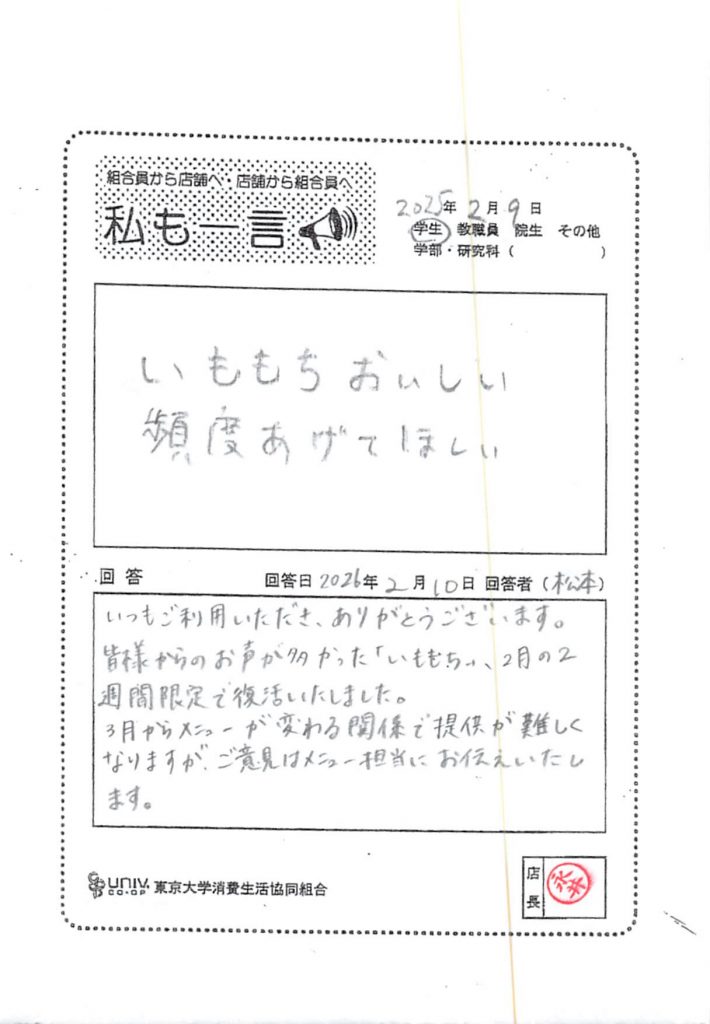 組合員から店舗へ・店舗から組合員へ
私も一言
2025年 2月 9日
学生 教職員 院生 その他
学部・研究科（ ）
いももちおいしい
頻度あげてほしい
回答 回答日 2026年 2月 10日 回答者（松本）
いつもご利用いただき、ありがとうございます。
皆様からのお声が多かった「いももち」、2月の2
週間限定で復活いたしました。
3月からメニューが変わる関係で提供が難しく
なりますが、ご意見はメニュー担当にお伝えいたし
ます。
UNIV. CO-OP 東京大学消費生活協同組合
店長
永井